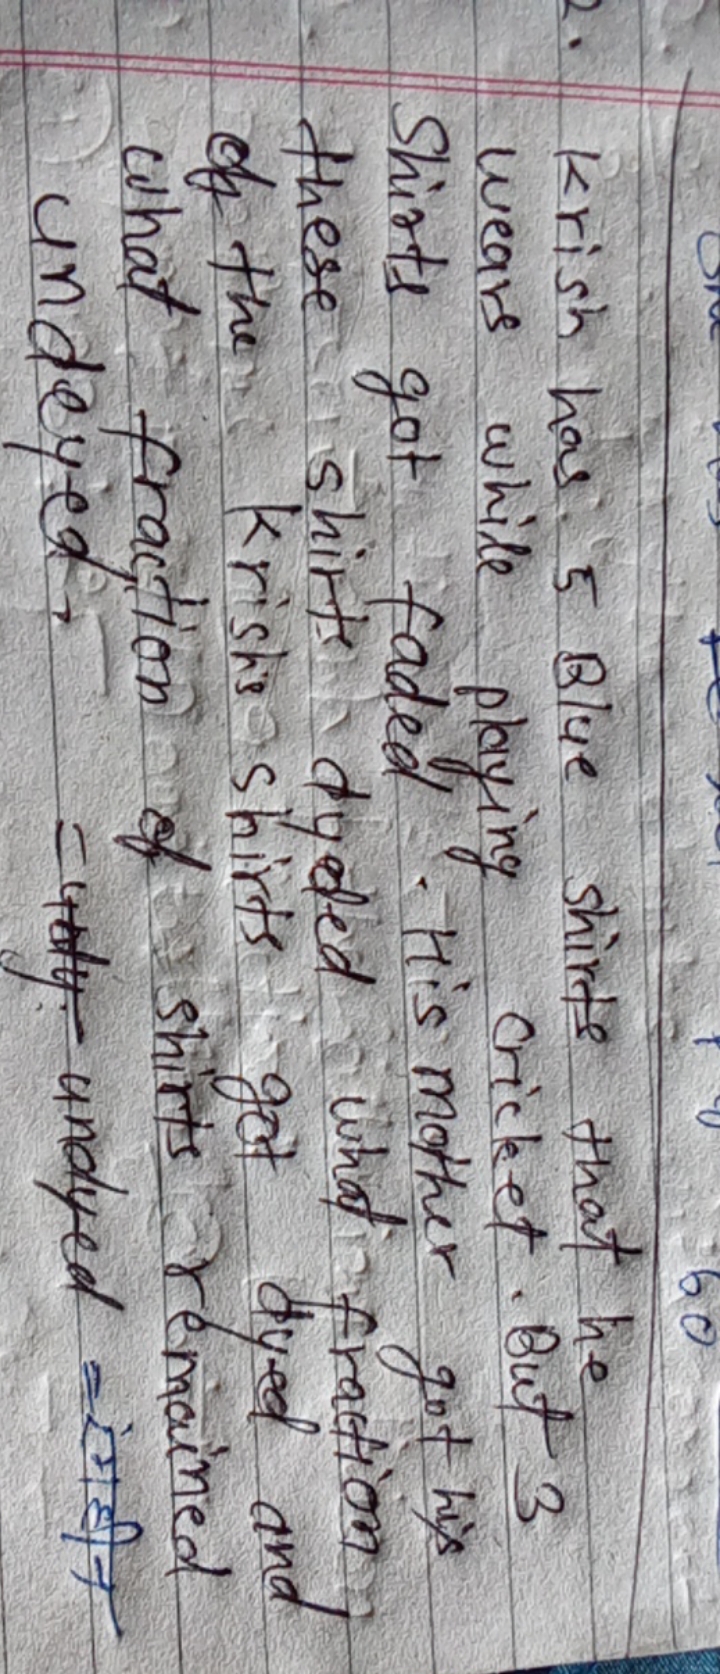 2.
Krish has 5 Blue shirts that he
wears while playing cricket. But 3
Shirts got faded. His mother got his
these shirts dyeded what fraction
of the Krish's shirts got dyed and
what fraction of shirts remained
undeyed.
= undyed =
60